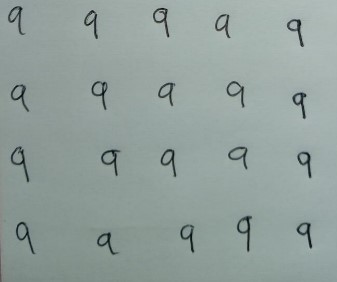 9 9 9 9 9
9 9 9 9 9
9 9 9 9 9
9 9 9 9 9